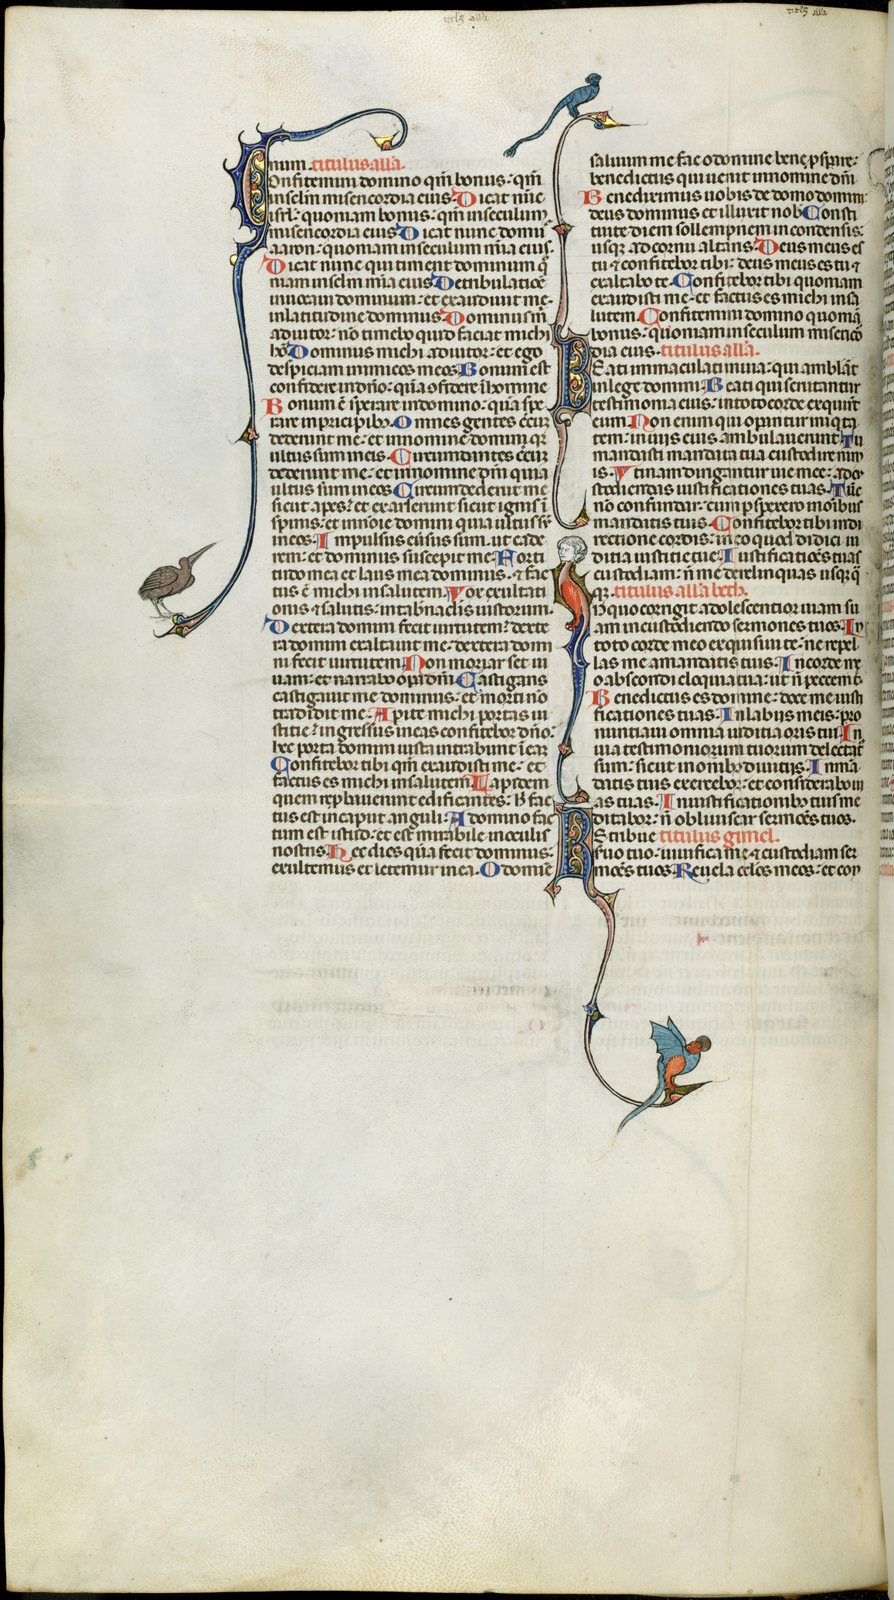 titls alla
titls alla
num. titulus alla.
Confitemini domino qm̄ bonus: qm̄
inselm̄ misericordia eius. Dicat nūc
isrl̄: quoniam bonus: qm̄ inseculum
misericordia eius. Dicat nunc domus
aaron: quoniam inseculum mīa eius.
Dicat nunc qui timent dominum: q̄
niam inselm̄ mīa eius. De tribulatiōe
inuocaui dominum: et exaudiuit me
inlatitudine dominus. Dominus m̄
adiutor: nō timebo quid faciat michi
hō. Dominus michi adiutor: et ego
despiciam inimicos meos. Bonum est
confidere indn̄o: quā ofidere ī homine
Bonum ē sperare indomino: quā spe
rare inpricipibꝫ. Omnes gentes c̄cu
dederunt me: et innomine domini qr̄
ultus sum ineis. Circumdantes c̄cu
dederunt me: et innomine dn̄i quia
ultus sum ineos. Circumdederunt me
sicut apes: et exarserunt sicut ignis ī
spinis: et inn̄oie domini quia ultus sū
ineos. Impulsus eūsus sum. ut cade
rem: et dominus suscepit me. Forti
tudo mea et laus mea dominus: ⁊ fac
tus ē michi insalutem. Vox exultati
onis ⁊ salutis: intab̄naclis iustorum.
Dextera domini fecit uirtutem: dexte
ra domini exaltauit me: dextera domi
ni fecit uirtutem. Non moriar set ui
uam: et narrabo opa dn̄i. Castigans
castigauit me dominus: et morti nō
tradidit me. Apite michi portas iu
sticie: ingressus ineas confitebor dn̄o:
hec porta domini iusti intrabunt ī eaꝫ
Confitebor tibi qm̄ exaudisti me: et
factus es michi insalutem. Lapidem
quem reprobauerunt edificantes: h̄ fac
tus est incaput anguli. A domino fac
tum est istud: et est mirabile inoculis
nostris. Hec dies quā fecit dominus:
exultemus et letemur in ea. O domie
saluum me fac o domine bene pspare:
benedictus qui uenit innomine dn̄i
Benediximus uobis de domo domini:
deus dominus et illuxit nob̄. Consti
tuite diem sollempnem incondensis:
usqꝫ ad cornu altaris. Deus meus es
tu ⁊ confitebor tibi: deus meus es tu ⁊
exaltabo te. Confitebor tibi quoniam
exaudisti me: et factus es michi insa
lutem. Confitemini domino quoniā
bonus: quoniam inseculum miserico
dia eius. titulus alla.
Beati immaculati inuia: qui amblāt
inlege domini. Beati qui scrutantur
testimonia eius: intoto corde exquirūt
eum. Non enim qui opantur iniqita
tem: inuiis eius ambulauerunt. Tu
mandasti mandata tua custodire nim
is. Vtinam dirigantur uie mee: ad cu
stodiendas iustificationes tuas. Tūc
nō confundar: cum pspexero inoibus
mandatis tuis. Confitebor tibi indi
rectione cordis: in eo quod didici iu
dicia iusticie tue. Iustificatiōes tuas
custodiam: n̄ me derelinquas usqꝫ q̄
qꝫ. titulus alla beth.
In quo corrigit adolescentior uiam su
am incustodiendo sermones tuos. In
toto corde meo exquisiui te: ne repel
las me amandatis tuis. In corde me
o abscondi eloquia tua: ut n̄ peccem t̄.
Benedictus es domine: doce me iusti
ficationes tuas. In labijs meis: pro
nuntiaui omnia iudicia oris tui. In
uia testimoniorum tuorum delectat̄
sum: sicut inoībꝫ diuitijs. In mā
datis tuis exercebor: et considerabo ui
as tuas. In iustificationibꝫ tuis me
ditabor: n̄ obliuiscar sermōes tuos.
Retribue titulus gimel.
seruo tuo: uiuifica me ⁊ custodiam ser
mōes tuos. Reuela oclos meos: et con